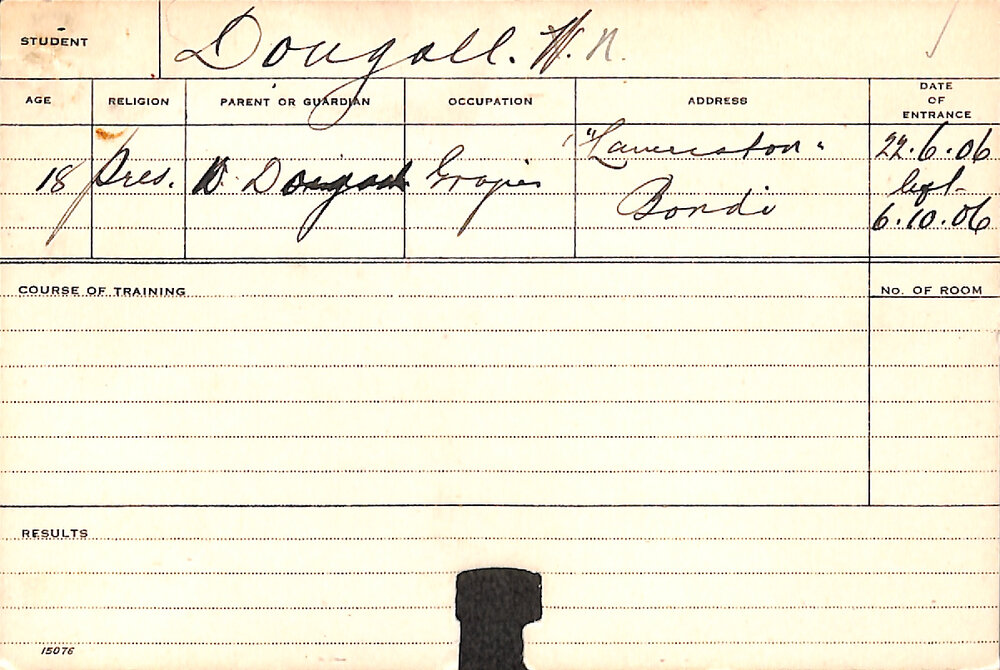 STUDENT
Dougall. W. N.
AGE
RELIGION
PARENT OR GUARDIAN
OCCUPATION
ADDRESS
DATE
OF
ENTRANCE
18
Pres.
D. Dougall
Grazier
"Launceston"
Bondi
22.6.06
left
6.10.06
COURSE OF TRAINING
No. OF ROOM
RESULTS
15076